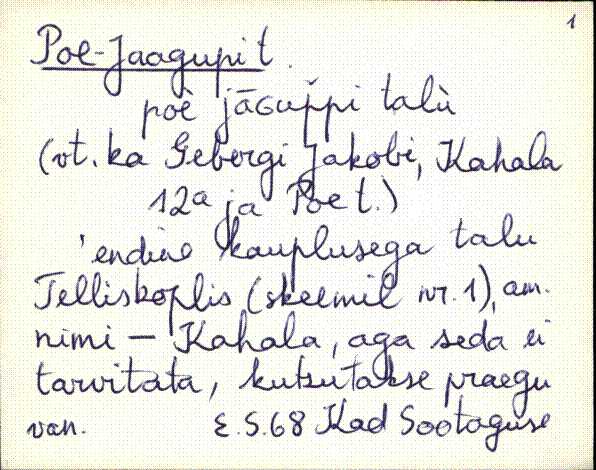 1
Poe-Jaagupi t.
poè jāGup̆pi talù
(vt. ka Gebergi Jakobi, Kahala
12a ja Poe t.)
'endine kauplusega talu
Telliskoplis (skeemil nr. 1), am.
nimi – Kahala, aga seda ei
tarvitata, kutsutakse praegu
van. E.S.68 Kad Sootaguse